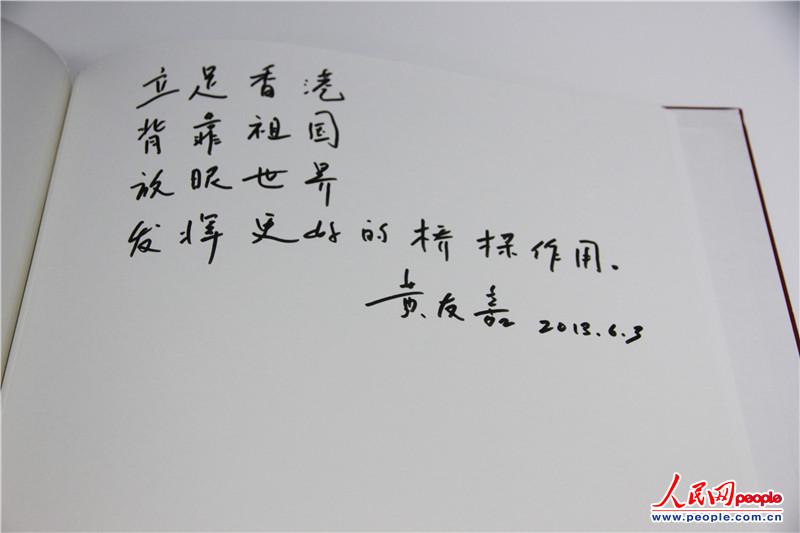 立足香港
背靠祖国
放眼世界
发挥更好的桥梁作用.
黄友嘉 2013.6.3
人民网 people
www.people.com.cn